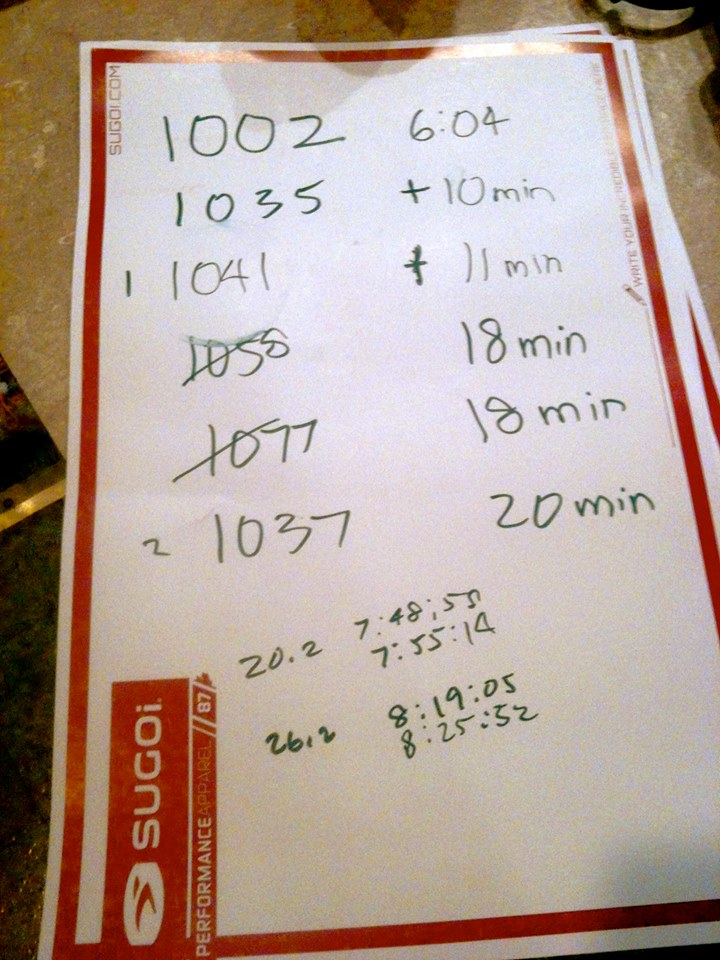 SUGOI.COM
1002 6:04
1035 + 10 min
1 1041 + 11 min
1058 18 min
1077 18 min
2 1037 20 min
20.2 7:48:55
7:55:14
26.2 8:19:05
8:25:52
SUGOi.
PERFORMANCEAPPAREL//87/
WRITE YOUR INCREDIBLE